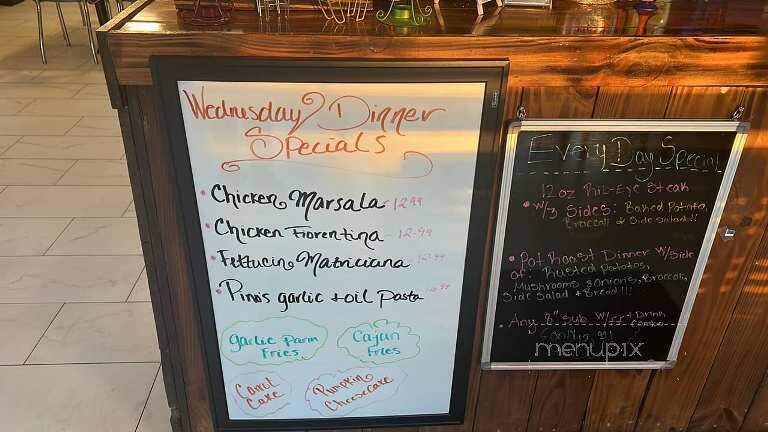 Wednesday Dinner
Specials
• Chicken Marsala - 12.99
• Chicken Fiorentina - 12.99
• Fettucin Matriciana 12.99
• Pinis garlic + oil Pasta
Garlic Parm
Fries
Cajun
Fries
Carrot
Cake
Pumpkin
Cheesecake
EveryDay Special
12oz Rib-Eye Steak
• W/3 Sides: Baked Potato,
Broccoli & Side Salad!!
• Pot Roast Dinner W/Side
of: Rusted Potatos,
Mushrooms & onions, Broccoli,
Side Salad + Bread!!!
• Any 8" Sub W/FF + Drink
menupix